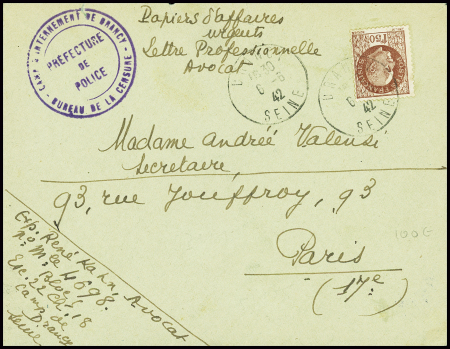 CAMP D'INTERNEMENT DE DRANCY
PREFECTURE
DE
POLICE
BUREAU DE LA CENSURE
Papiers d'affaires
urgents
Lettre Professionnelle
Avocat
1F50
16 30
6 - 6
42
SEINE
6
42
SEINE
Madame Andrée Valensi
Secretaire
93, rue Jouffroy, 93
Paris
(17e)
100€
Exp. René Kahn, Avocat
no Mle 4698.
Bloc
Esc. 22 Ch. 18
Camp de
Drancy
Seine